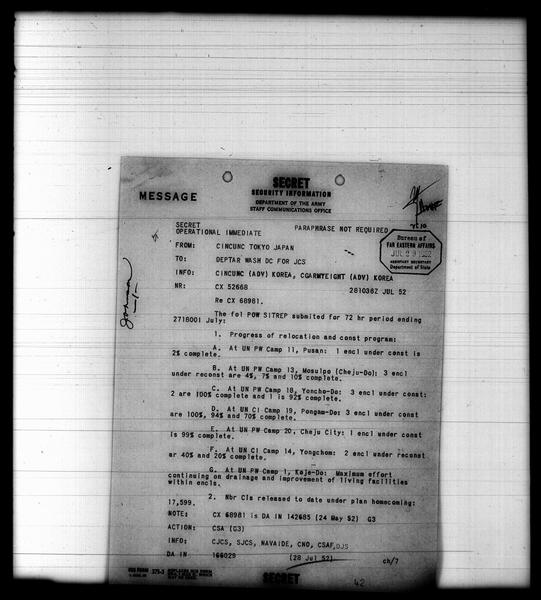 SECRET
SECURITY INFORMATION
DEPARTMENT OF THE ARMY
STAFF COMMUNICATIONS OFFICE
MESSAGE
SECRET
PARAPHRASE NOT REQUIRED
OPERATIONAL IMMEDIATE
Bureau of
FAR EASTERN AFFAIRS
ASSISTANT SECRETARY
Department of State
FROM: CINCUNC TOKYO JAPAN
TO: DEPTAR WASH DC FOR JCS
INFO: CINCUNC (ADV) KOREA, CGARMYEIGHT (ADV) KOREA
NR: CX 52668 281036Z JUL 52
Re CX 68981.
The fol POW SITREP submited for 72 hr period ending
271800I July:
1. Progress of relocation and const program:
A. At UN PW Camp 11, Pusan: 1 encl under const is
2% complete.
B. At UN PW Camp 13, Mosulpo (Cheju-Do): 3 encl
under reconst are 4%, 7% and 10% complete.
C. At UN PW Camp 18, Yoncho-Do: 3 encl under const:
2 are 100% complete and 1 is 92% complete.
D. At UN CI Camp 19, Pongam-Do: 3 encl under const
are 100%, 94% and 70% complete.
E. At UN PW Camp 20, Cheju City: 1 encl under const
is 99% complete.
F. At UN CI Camp 14, Yongchom: 2 encl under reconst
ar 40% and 20% complete.
G. At UN PW Camp 1, Koje-Do: Maximum effort
continuing on drainage and improvement of living facilities
within encls.
2. Nbr CIs released to date under plan homecoming:
17,599.
NOTE: CX 68981 is DA IN 142685 (24 May 52) G3
ACTION: CSA (G3)
INFO: CJCS, SJCS, NAVAIDE, CNO, CSAF, DJS
DA IN 166029 (28 Jul 52) ch/7
SECRET
42
Johnson